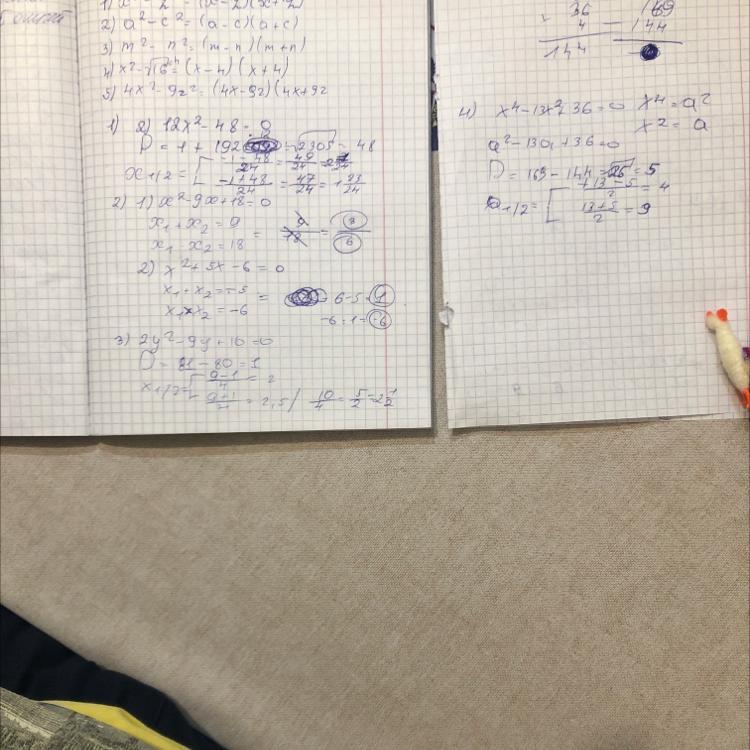 2) a² - c² = (a - c)(a + c)
3) m² - n² = (m - n)(m + n)
4) x² - √16 = (x - 4)(x + 4)
5) 4x² - 9z² = (4x - 9z)(4x + 9z
1) 2) 12x² - 48 = 0
D = 1 + 192 √2305 = 48
x1/2 = [ -1-48/24 = 49/24
-1+48/24 = 47/24 = 1 23/24
2) 1) x² - 9x + 18 = 0
x₁ + x₂ = 9
x₁ x₂ = 18
= 9/18 = 3 6
2) x² + 5x - 6 = 0
x₁ + x₂ = -5
x₁ × x₂ = -6
= 6 - 5 = 1
-6 · 1 = -6
3) 2y² - 9y + 10 = 0
D = 81 - 80 = 1
x1/2 = [ 9-1/4 = 2
9+1/4 = 2,5 / 10/4 = 5/2 = 2 1/2
36
4
144
169
144
4) x⁴ - 13x² + 36 = 0 x⁴ = a²
x² = a
a² - 13a + 36 = 0
D = 169 - 144 = √25 = 5
1/2 = [ +13-5/2 = 4
13+5/2 = 9